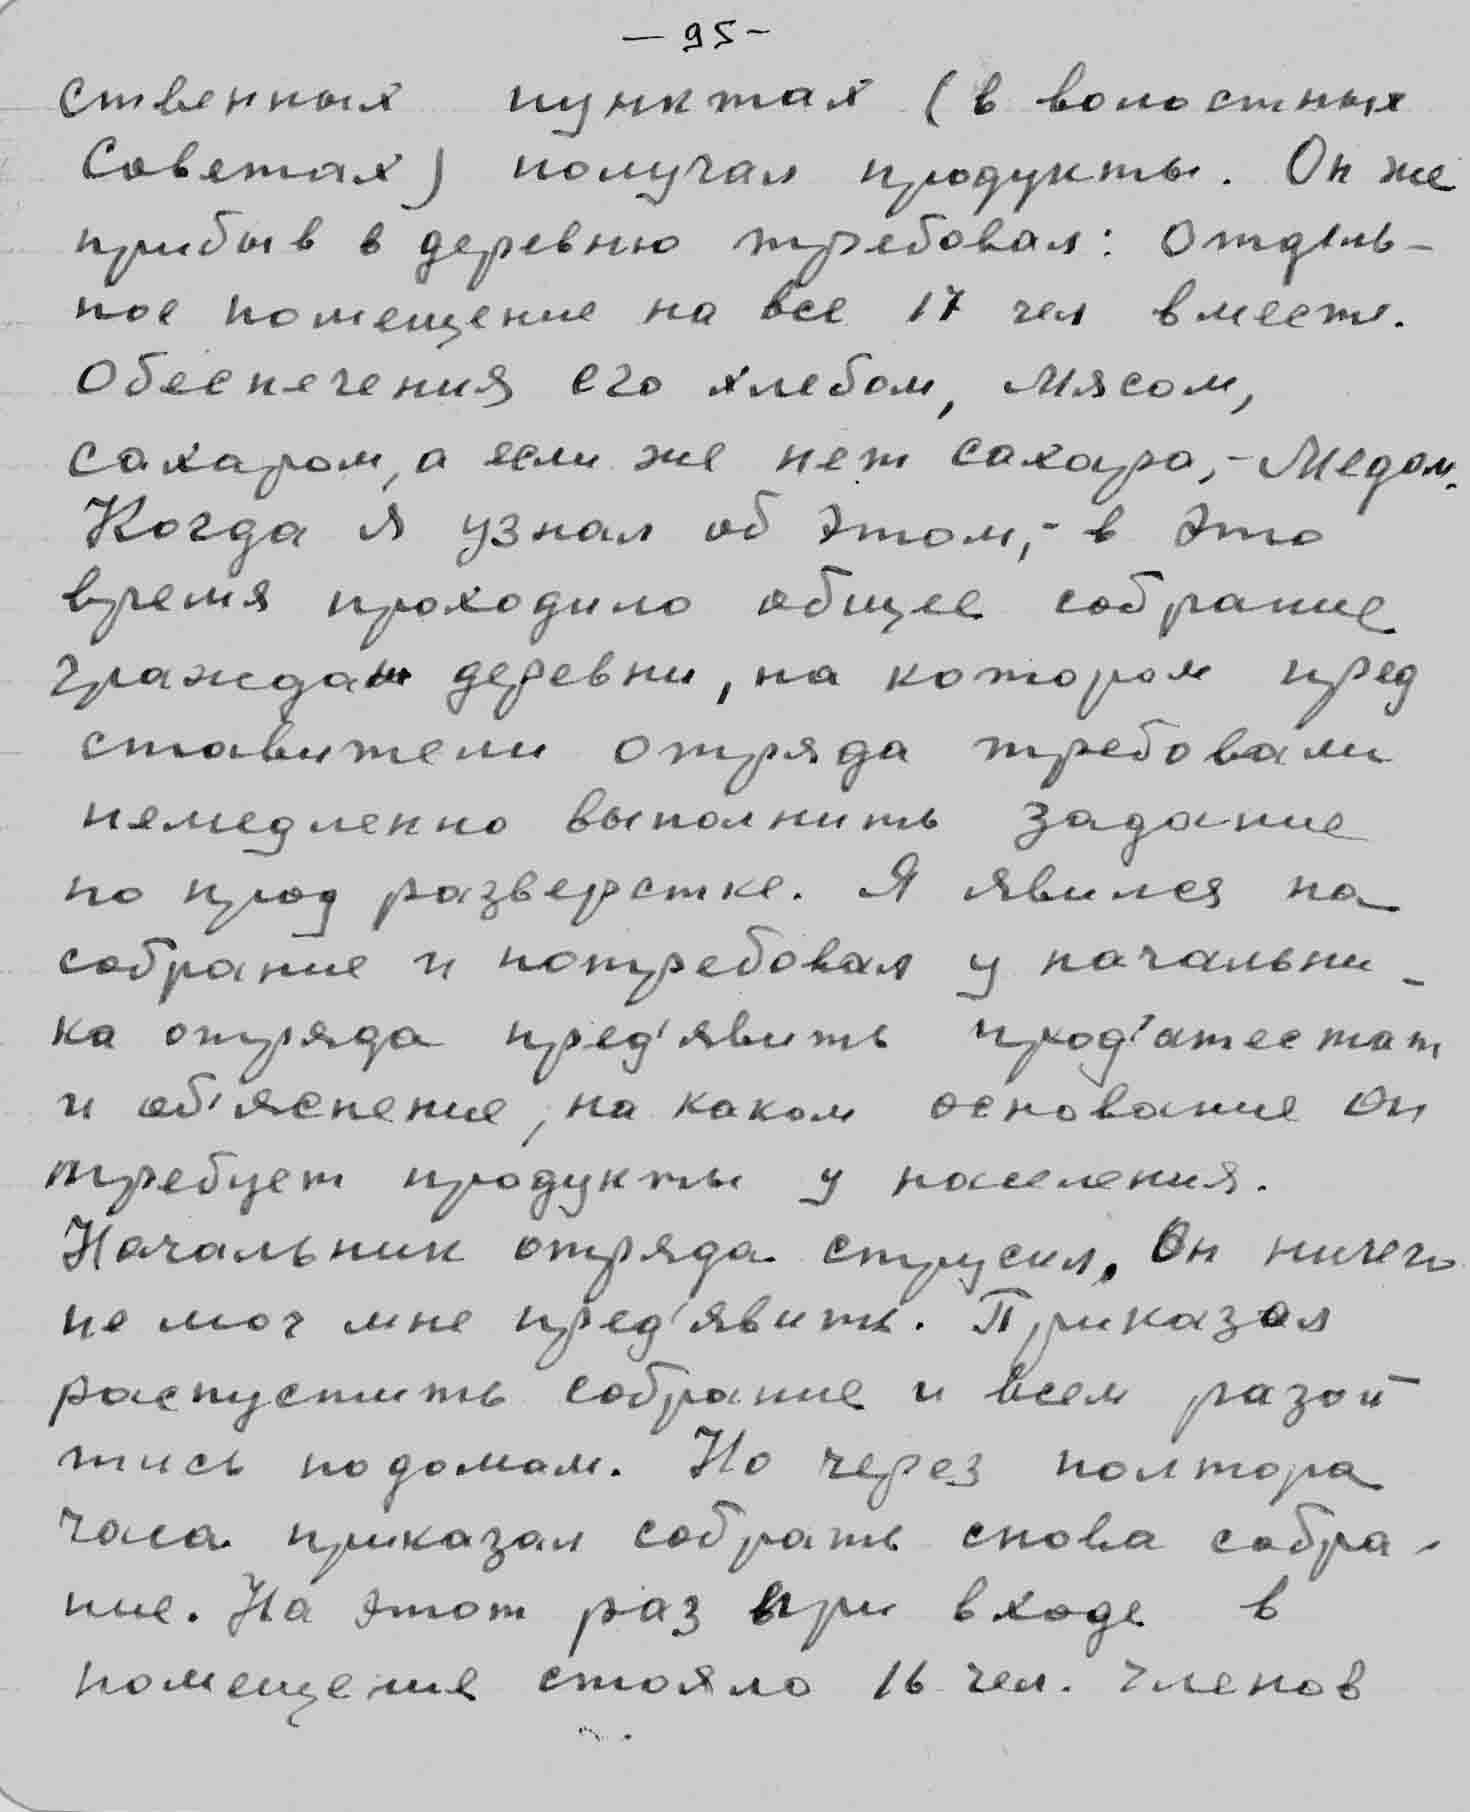 - 95 -
ственных пунктах (в волостных
Советах) получал продукты. Он же
прибыв в деревню требовал: Отдель-
ное помещение на все 17 чел вместе.
Обеспечения его хлебом, мясом,
сахаром, а если же нет сахара, - Медом.
Когда я узнал об этом, - в это
время проходило общее собрание
граждан деревни, на котором пред
ставители отряда требовали
немедленно выполнить задание
по прод развёрстке. Я явился на
собрание и потребовал у начальни-
ка отряда пред'явить прод'атестат
и об'яснение, на каком основание он
требует продукты у населения.
Начальник отряда струсил. Он ничего
не мог мне пред'явить. Приказал
распустить собрание и всем разой
тись по домам. Но через полтора
часа приказал собрать снова собра-
ние. На этот раз при входе в
помещение стояло 16 чел. членов